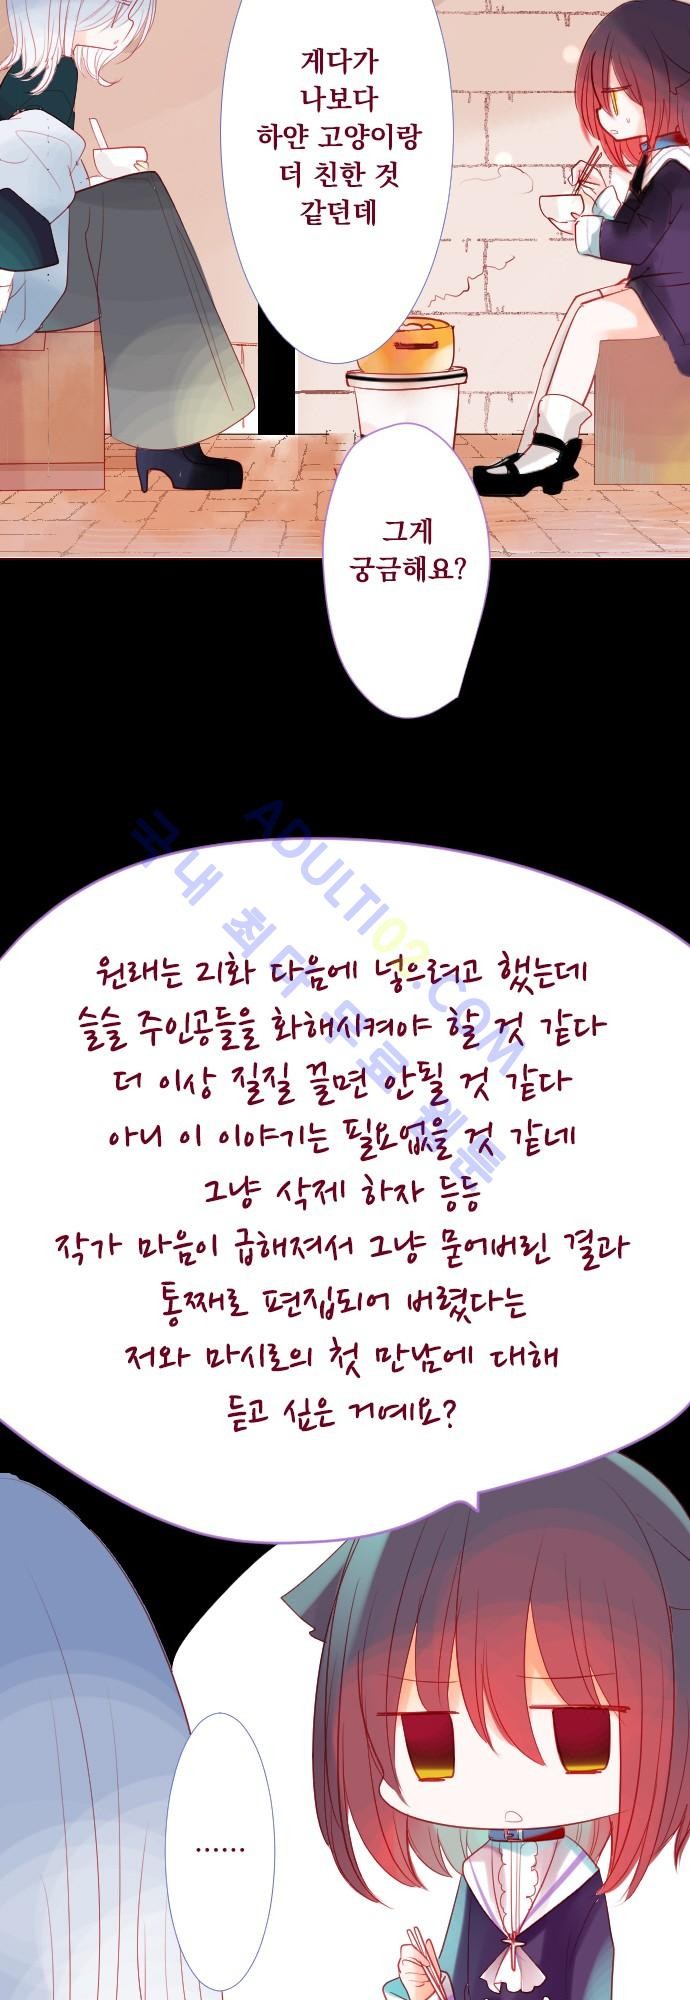 게다가
나보다
하얀 고양이랑
더 친한 것
같던데
그게
궁금해요?
ADULTI03.COM
국내 최다 무료 웹툰
원래는 리화 다음에 넣으려고 했는데
슬슬 주인공들을 화해시켜야 할 것 같다
더 이상 질질 끌면 안될 것 같다
아니 이 이야기는 필요없을 것 같네
그냥 삭제 하자 등등
작가 마음이 급해져서 그냥 묻어버린 결과
통째로 편집되어 버렸다는
저와 마시로의 첫 만남에 대해
듣고 싶은 거예요?
⋯⋯